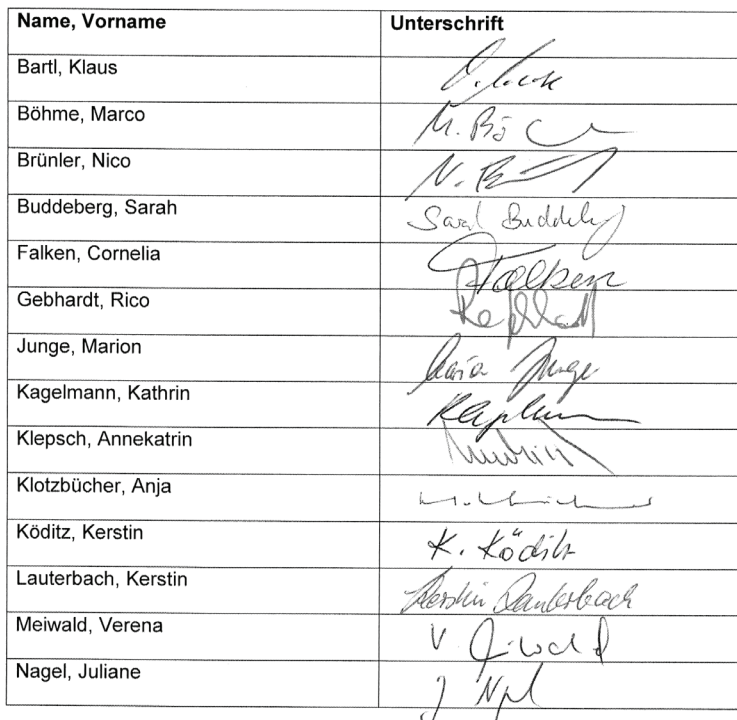 Name, Vorname Unterschrift
Bartl, Klaus
Böhme, Marco M. Bö
Brünler, Nico N. B
Buddeberg, Sarah Sarah Buddeberg
Falken, Cornelia Falken
Gebhardt, Rico
Junge, Marion Junge
Kagelmann, Kathrin
Klepsch, Annekatrin
Klotzbücher, Anja
Köditz, Kerstin K. Köditz
Lauterbach, Kerstin Kerstin Lauterbach
Meiwald, Verena V.
Nagel, Juliane J